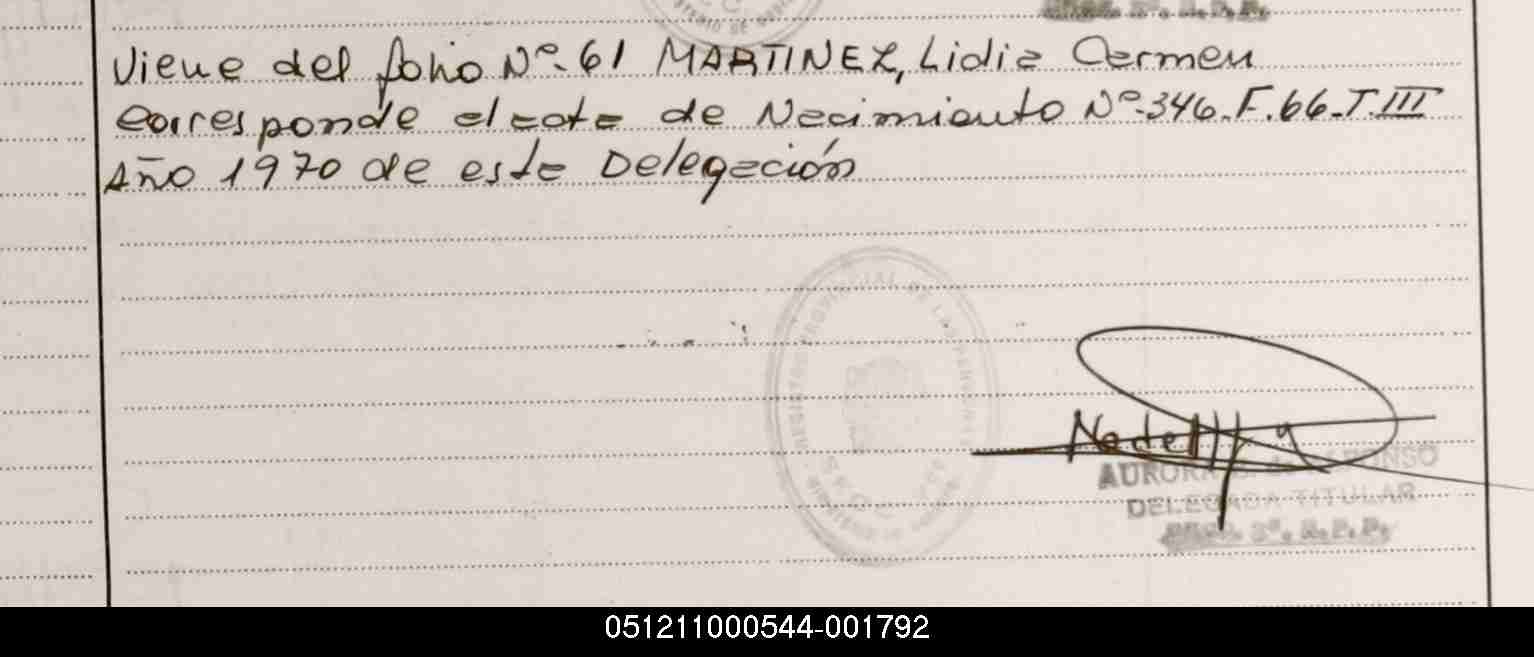 Viene del folio Nº-61 MARTINEZ, Lidia Carmen
corresponde al acta de Nacimiento Nº-346-F.66-T.III
Año 1970 de esta Delegación
REGISTRO PROVINCIAL DE LAS PERSONAS
AURORA
DELEGADA TITULAR
051211000544-001792